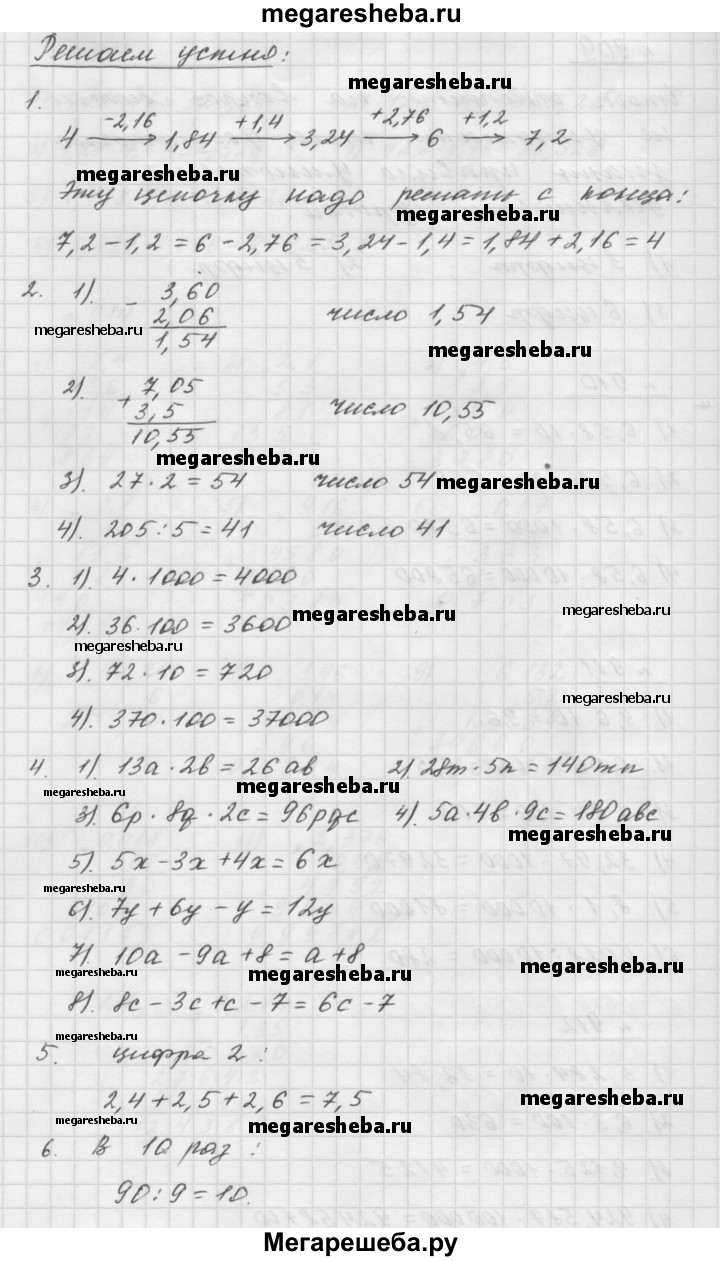 megaresheba.ru
Решаем устно:
megaresheba.ru
1.
4 -2,16→ 1,84 +1,4→ 3,24 +2,76→ 6 +1,2→ 7,2
megaresheba.ru
Эту цепочку надо решать с конца:
megaresheba.ru
7,2 - 1,2 = 6 - 2,76 = 3,24 - 1,4 = 1,84 + 2,16 = 4
2. 1). - 3,60
megaresheba.ru 2,06 число 1,54
1,54
megaresheba.ru
2). 7,05
+ 3,5 число 10,55
10,55
megaresheba.ru
3). 27 · 2 = 54 число 54 megaresheba.ru
4). 205 : 5 = 41 число 41
3. 1). 4 · 1000 = 4000
megaresheba.ru megaresheba.ru
2). 36 · 100 = 3600
megaresheba.ru
3). 72 · 10 = 720
megaresheba.ru
4). 370 · 100 = 37000
4. 1). 13a · 2b = 26ab 2). 28m · 5n = 140mn
megaresheba.ru megaresheba.ru
3). 6p · 8q · 2c = 96pqc 4). 5a · 4b · 9c = 180abc
megaresheba.ru
5). 5x - 3x + 4x = 6x
megaresheba.ru
6). 7y + 6y - y = 12y
7). 10a - 9a + 8 = a + 8
megaresheba.ru megaresheba.ru megaresheba.ru
8). 8c - 3c + c - 7 = 6c - 7
megaresheba.ru
5. цифра 2 :
2,4 + 2,5 + 2,6 = 7,5
megaresheba.ru megaresheba.ru megaresheba.ru
6. В 10 раз :
90 : 9 = 10.
Мегарешеба.ру